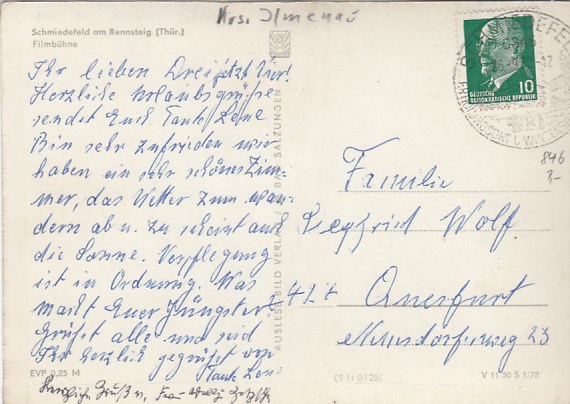 Krs. Ilmenau
Schmiedefeld am Rennsteig (Thür.)
Filmbühne
Ihr lieben Drei jetzt Vier!
Herzliche Urlaubsgrüße
sendet Euch Tante Lene
Bin sehr zufrieden wir
haben ein sehr schönes Zim-
mer, das Wetter zum wan-
dern ab u. zu scheint auch
die Sonne. Verpflegung
ist in Ordnung. Was
macht Euer Jüngster
Grüßt alle und seid
Ihr herzlich gegrüßt von
Tante Lene
EVP 0,25 M
AUSLESE-BILD VERLAG / BAD SALZUNGEN
10
DEUTSCHE
DEMOKRATISCHE REPUBLIK
846
Familie
Siegfried Wolf.
Querfurt
23
V 11 50 S 1/72